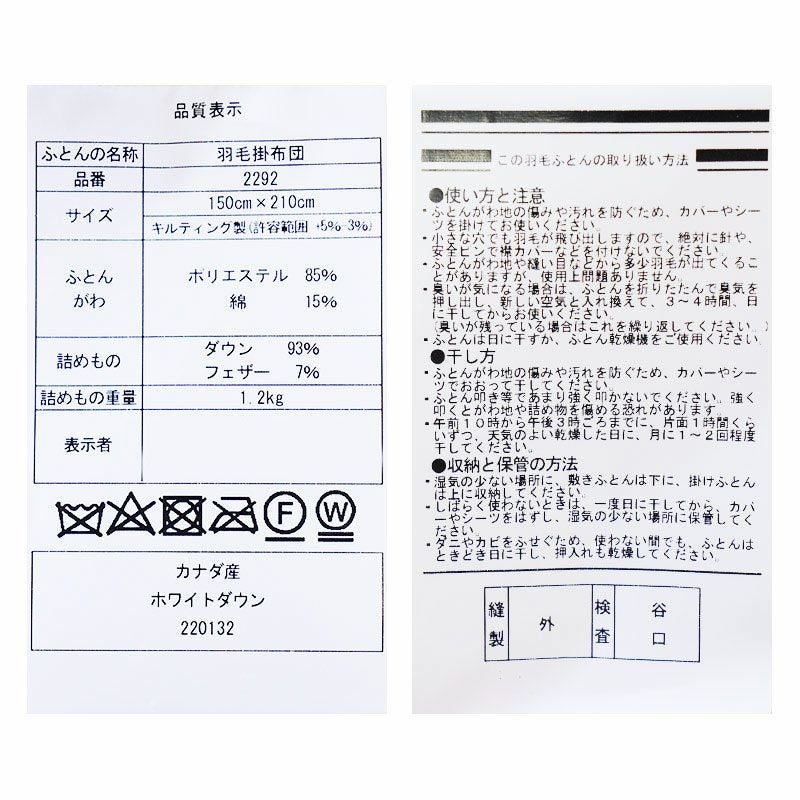 品質表示
ふとんの名称 羽毛掛布団
品番 2292
サイズ 150cm×210cm
キルティング製(許容範囲 +5%-3%)
ふとんがわ ポリエステル 85%
綿 15%
詰めもの ダウン 93%
フェザー 7%
詰めもの重量 1.2kg
表示者
F W
カナダ産
ホワイトダウン
220132
この羽毛ふとんの取り扱い方法
●使い方と注意
・ふとんがわ地の傷みや汚れを防ぐため、カバーやシー
ツを掛けてお使いください。
・小さな穴でも羽毛が飛び出しますので、絶対に針や、
安全ピンで襟カバーなどを付けないでください。
・ふとんがわ地や縫い目などから多少羽毛が出てくるこ
とがありますが、使用上問題ありません。
・臭いが気になる場合は、ふとんを折りたたんで臭気を
押し出し、新しい空気と入れ換えて、3～4時間、日
に干してからお使いください。
(臭いが残っている場合はこれを繰り返してください。)
・ふとんは日に干すか、ふとん乾燥機をご使用ください。
●干し方
・ふとんがわ地の傷みや汚れを防ぐため、カバーやシー
ツでおおって干してください。
・ふとん叩き等であまり強く叩かないでください。強く
叩くとがわ地や詰め物を傷める恐れがあります。
・午前10時から午後3時ごろまでに、片面1時間くら
いずつ、天気のよい乾燥した日に、月に1～2回程度
干してください。
●収納と保管の方法
・湿気の少ない場所に、敷きふとんは下に、掛けふとん
は上に収納してください。
・しばらく使わないときは、一度日に干してから、カバ
ーやシーツをはずし、湿気の少ない場所に保管してく
ださい。
・ダニやカビをふせぐため、使わない間でも、ふとんは
ときどき日に干し、押入れも乾燥してください。
縫製 外 検査 谷口